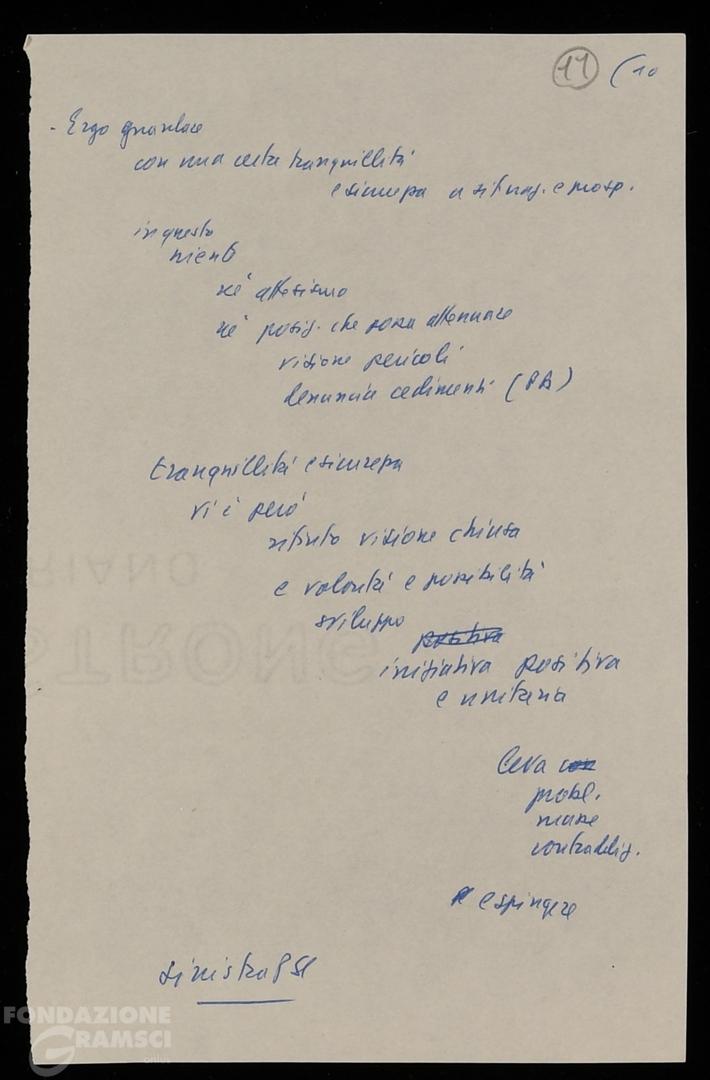 11 (10
- Ergo guardare
con una certa tranquillità
e sicurezza a situaz. e prosp.
in questo
niente
né attesismo
né posiz. che possa attenuare
visione pericoli
denuncia cedimenti (PA)
tranquillità e sicurezza
vi è però
rifiuto visione chiusa
e volontà e possibilità
sviluppo
positiva
iniziativa positiva
e unitaria
Leva con
probl.
masse
contraddiz.
e spingere
Sinistra PSI
RIANO
STRONG
FONDAZIONE
GRAMSCI
onlus